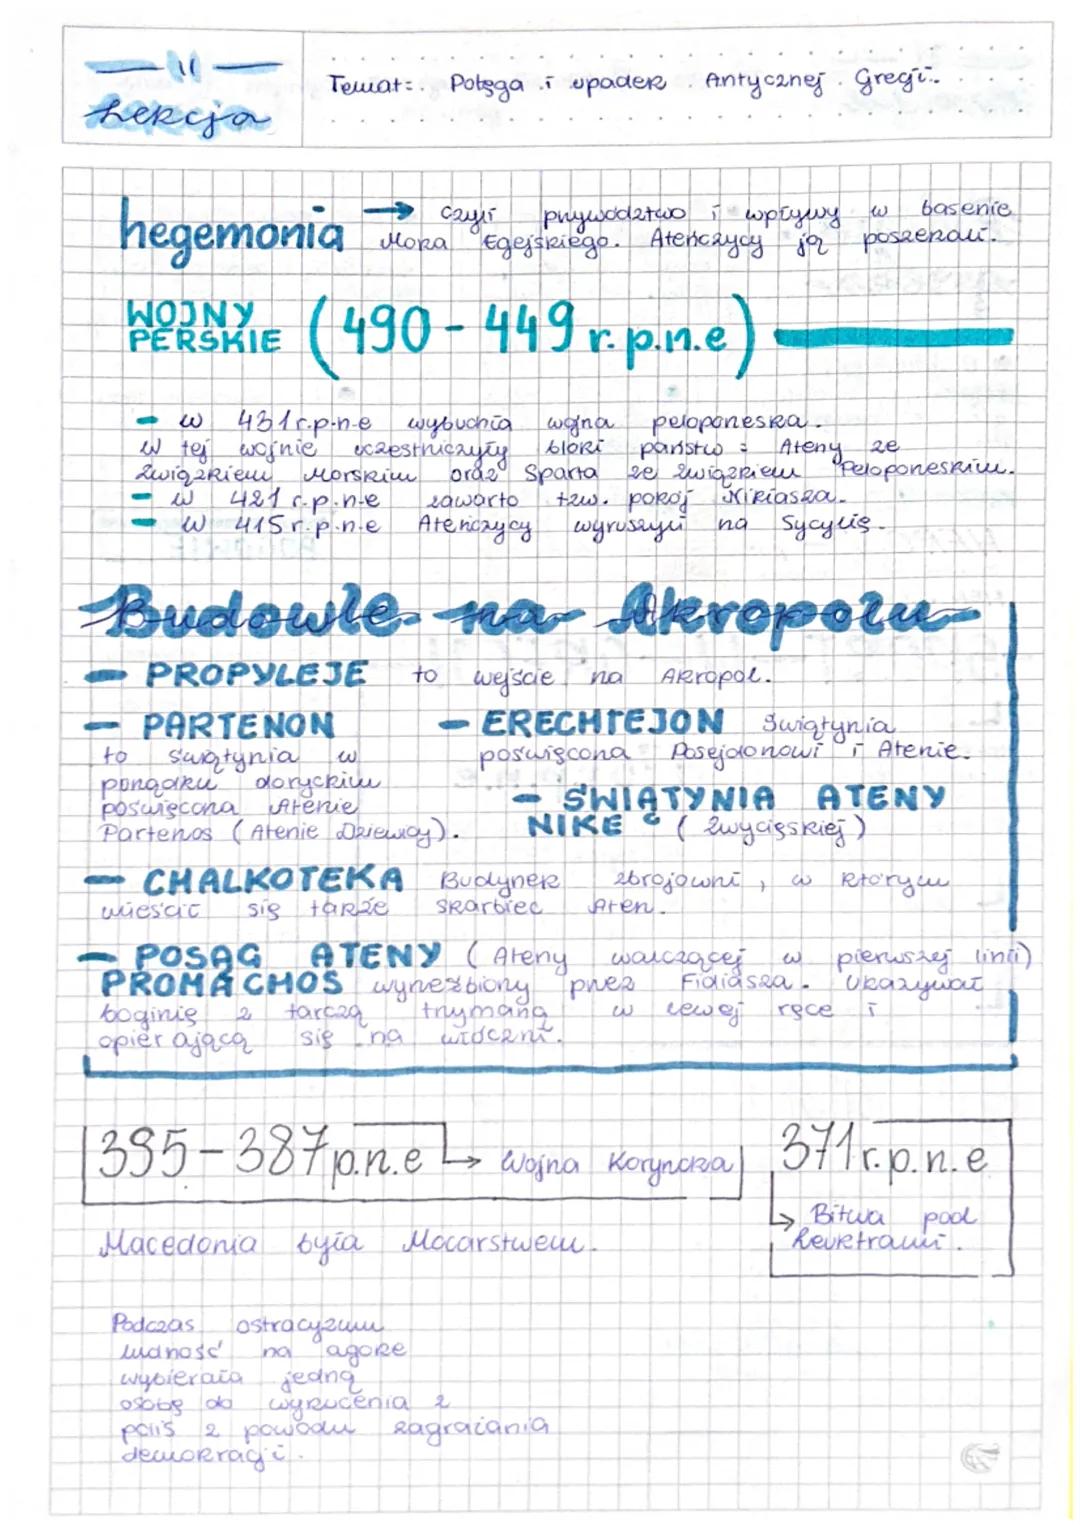 11
Lekcja
Temat: Potęga i upadek Antycznej Grecji.
hegemonia → czyli przywództwo i wpływy w basenie
Morza Egejskiego. Ateńczycy ją poszerzali.
WOJNY
PERSKIE (490-449 r.p.n.e)
- w 431 r.p.n.e wybuchła wojna peloponeska.
W tej wojnie uczestniczyły bloki państw: Ateny ze
związkiem Morskim oraz Sparta ze związkiem Peloponeskim.
- w 421 r.p.n.e zawarto tzw. pokój Nikiasza.
- w 415 r.p.n.e Ateńczycy wyruszyli na Sycylię.
Budowle na Akropolu
- PROPYLEJE to wejście na Akropol.
- PARTENON
to świątynia w
porządku doryckim
poświęcona Atenie
Partenos (Atenie Dziewicy).
- ERECHTEJON świątynia
poświęcona Posejdonowi i Atenie.
- ŚWIĄTYNIA ATENY
NIKE (zwycięskiej)
- CHALKOTEKA Budynek zbrojowni, w którym
mieścił się także skarbiec Aten.
- POSĄG ATENY (Ateny walczącej w pierwszej linii)
PROMACHOS wyrzeźbiony przez Fidiasza. Ukazywał
boginię z tarczą trzymaną w lewej ręce i
opierającą się na włóczni.
395-387 p.n.e → Wojna Koryncka
371 r.p.n.e
→ Bitwa pod
Leuktrami.
Macedonia była Mocarstwem.
Podczas ostracyzmu
ludność na agorze
wybierała jedną
osobę do wyrzucenia z
polis z powodu zagrażania
demokracji.